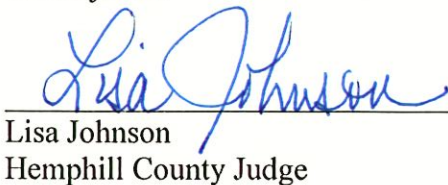 Lisa Johnson
Lisa Johnson
Hemphill County Judge